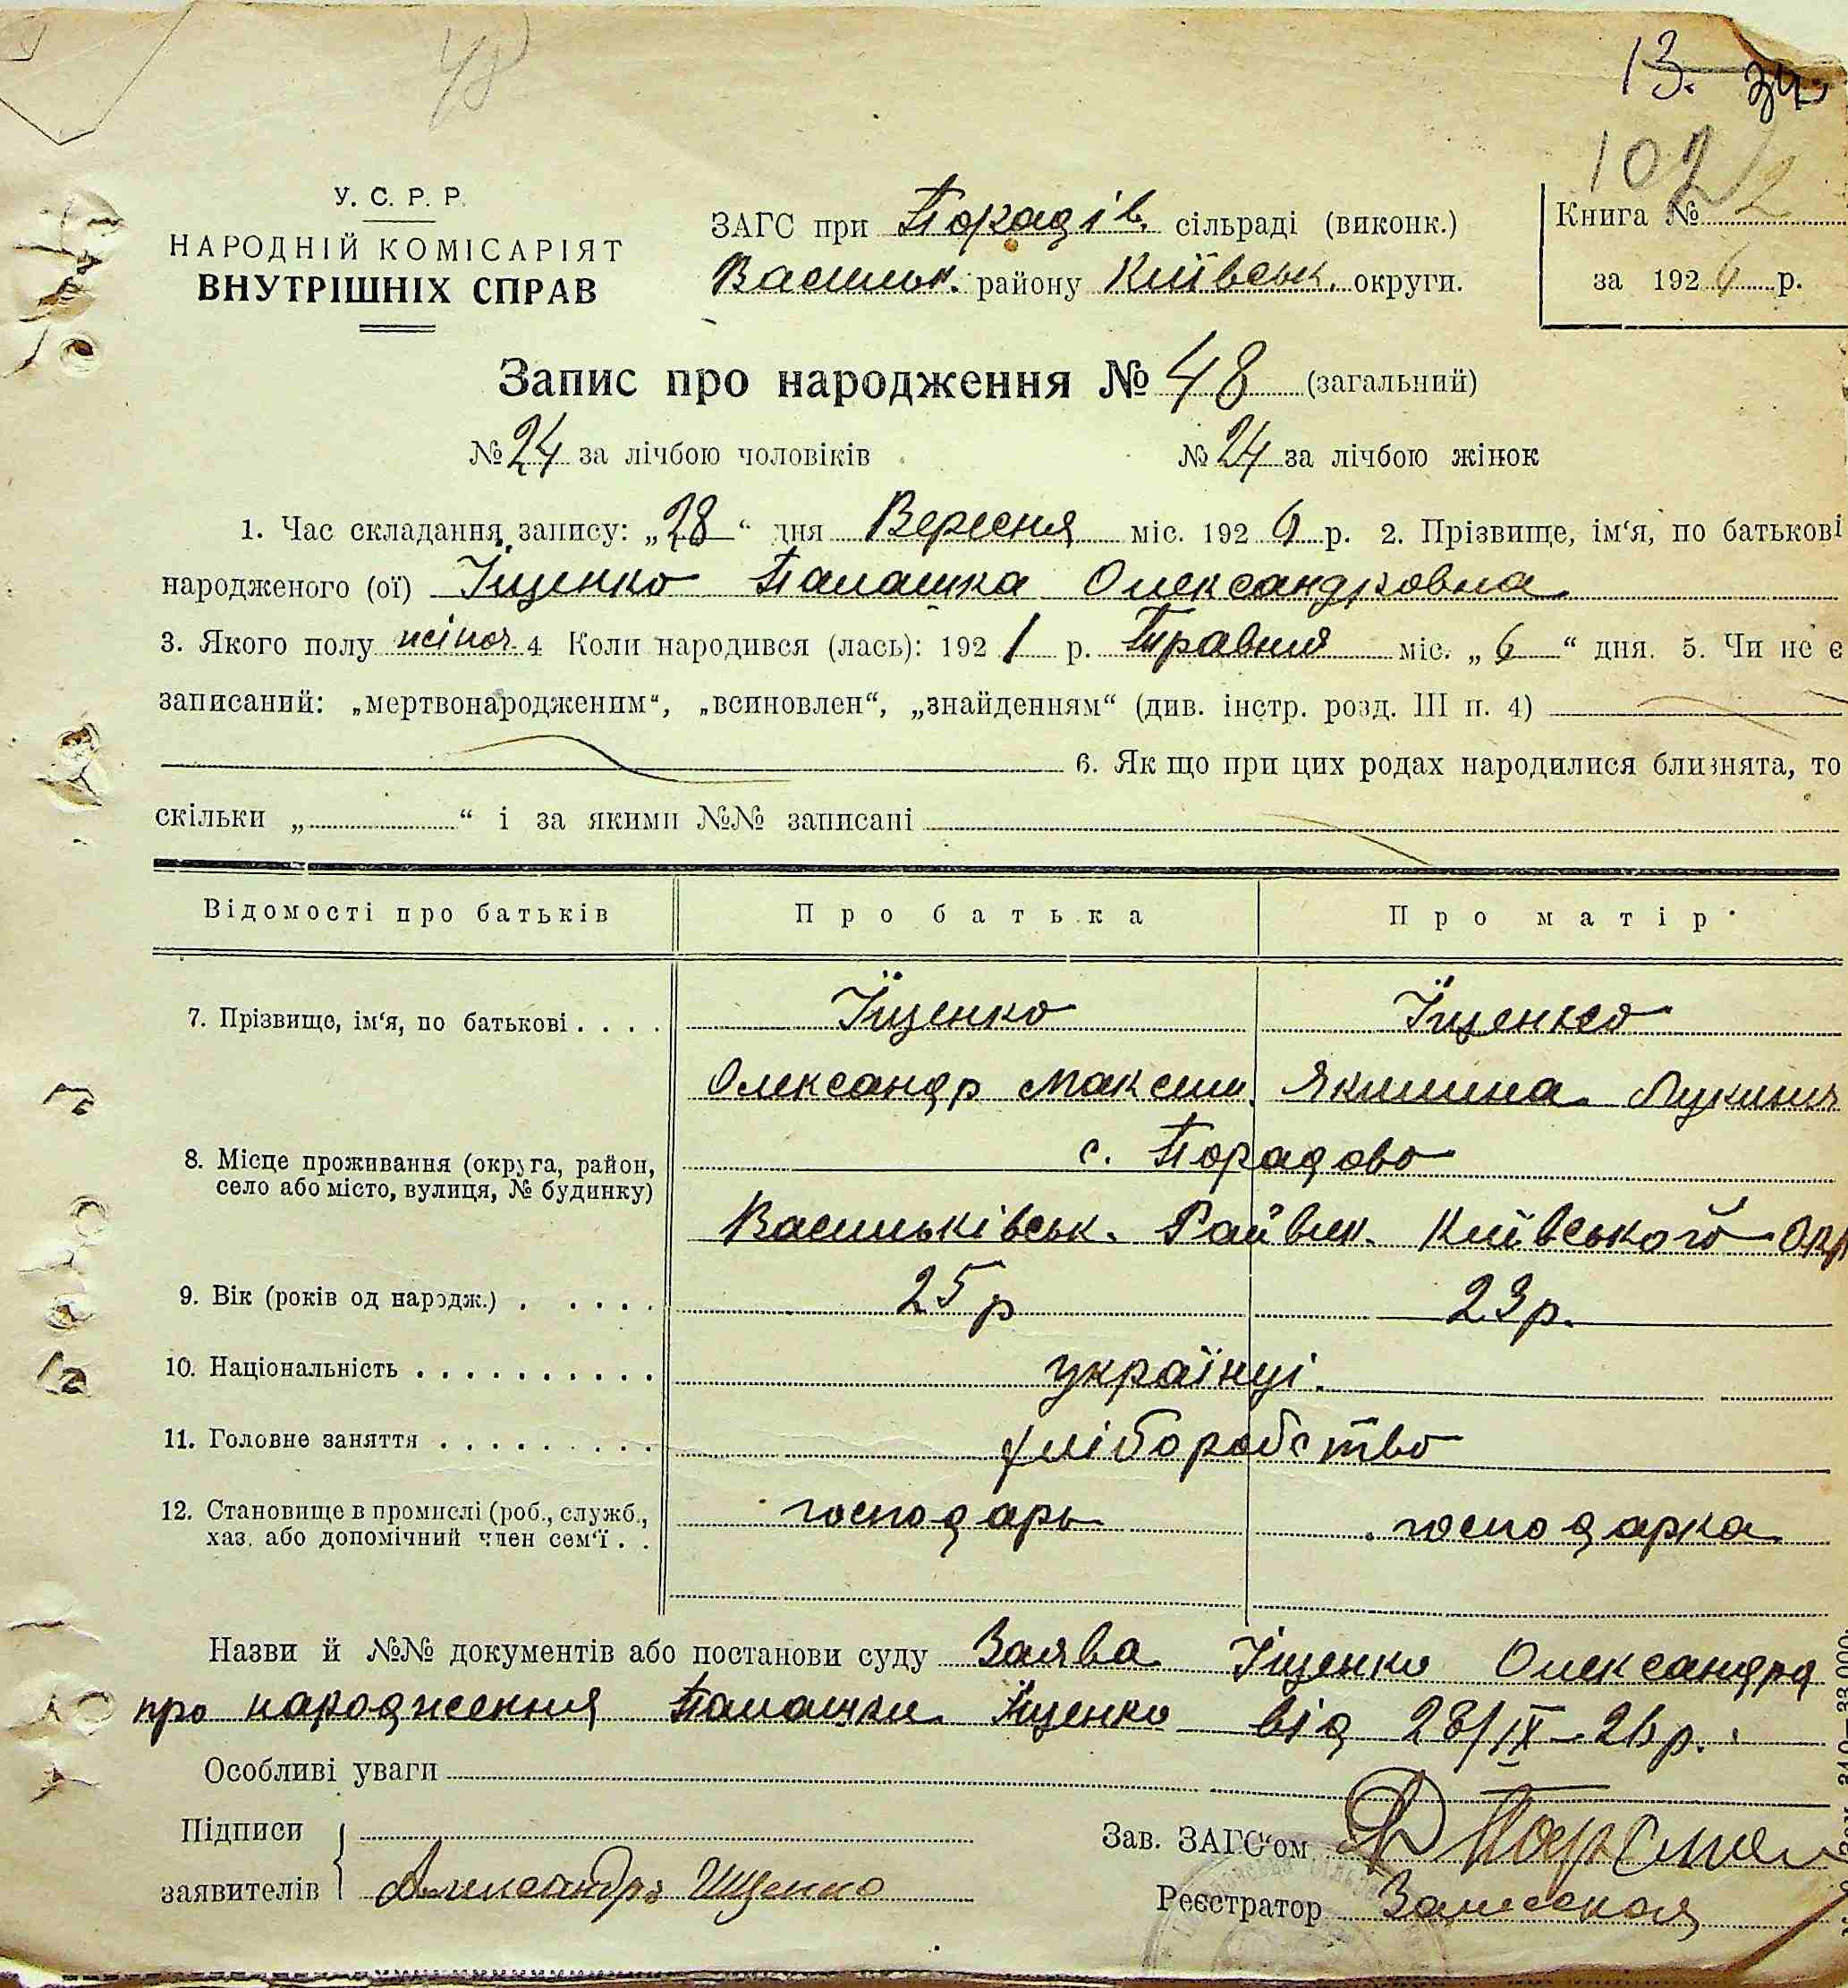 48
13. зч.
102
У. С. Р. Р.
НАРОДНІЙ КОМІСАРІЯТ
ВНУТРІШНІХ СПРАВ
ЗАГС при Порадів. сільраді (виконк.)
Васильк. району Київськ. округи.
Книга № 2
за 1926 р.
Запис про народження № 48 (загальний)
№ 24 за лічбою чоловіків № 24 за лічбою жінок
1. Час складання запису: „28“ дня Вересня міс. 1926 р. 2. Прізвище, ім‘я, по батькові
народженого (ої) Їщенко Палашка Олександровна
3. Якого полу жіноч. 4 Коли народився (лась): 1921 р. Травня міс. „6“ дня. 5. Чи не є
записаний: „мертвонародженим“, „всиновлен“, „знайденням“ (див. інстр. розд. III п. 4)
6. Як що при цих родах народилися близнята, то
скільки „ “ і за якими №№ записані
Відомості про батьків Про батька Про матір
7. Прізвище, ім‘я, по батькові . . . . Їщенко Їщенко
Олександр Максим. Якилина Лукинич
8. Місце проживання (округа, район, с. Порадово
село або місто, вулиця, № будинку)
Васильківськ. Райвик. Київського Окр
9. Вік (років од народж.) . . . . . 25 р 23 р.
10. Національність . . . . . . . . . . українці.
11. Головне заняття . . . . . . . . . хліборобство
12. Становище в промислі (роб., служб., господарь господарка
хаз. або допомічний член сем‘ї . .
Назви й №№ документів або постанови суду Заява Їщенко Олександра
про народження Палашки Їщенко від 28/IX–26 р.
Особливі уваги
Підписи
заявителів Александра Ищенко
Зав. ЗАГС‘ом
Реєстратор Залесская